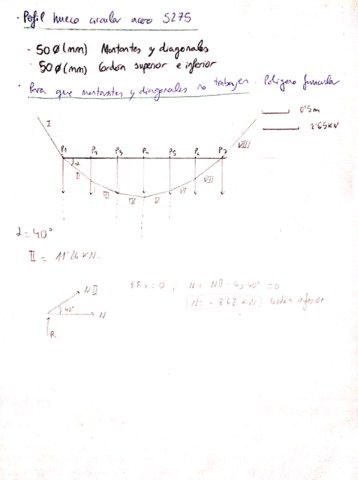 · Perfil hueco circular acero S275
- 50 Ø (mm) Montantes y diagonales
- 50 Ø (mm) Cordón superior e inferior
· Para que montantes y diagonales no trabajen. Polígono funicular
0'5m
2'65KN
I
VIII
P1 P2 P3 P4 P5 P6 P7
α
II III IV V VI VII
α = 40°
II = 11'24 KN.
ΣFx = 0 , N + NII · Cos 40° = 0
N = - 8'62 KN) Cordón inferior
NII
40°
N
R